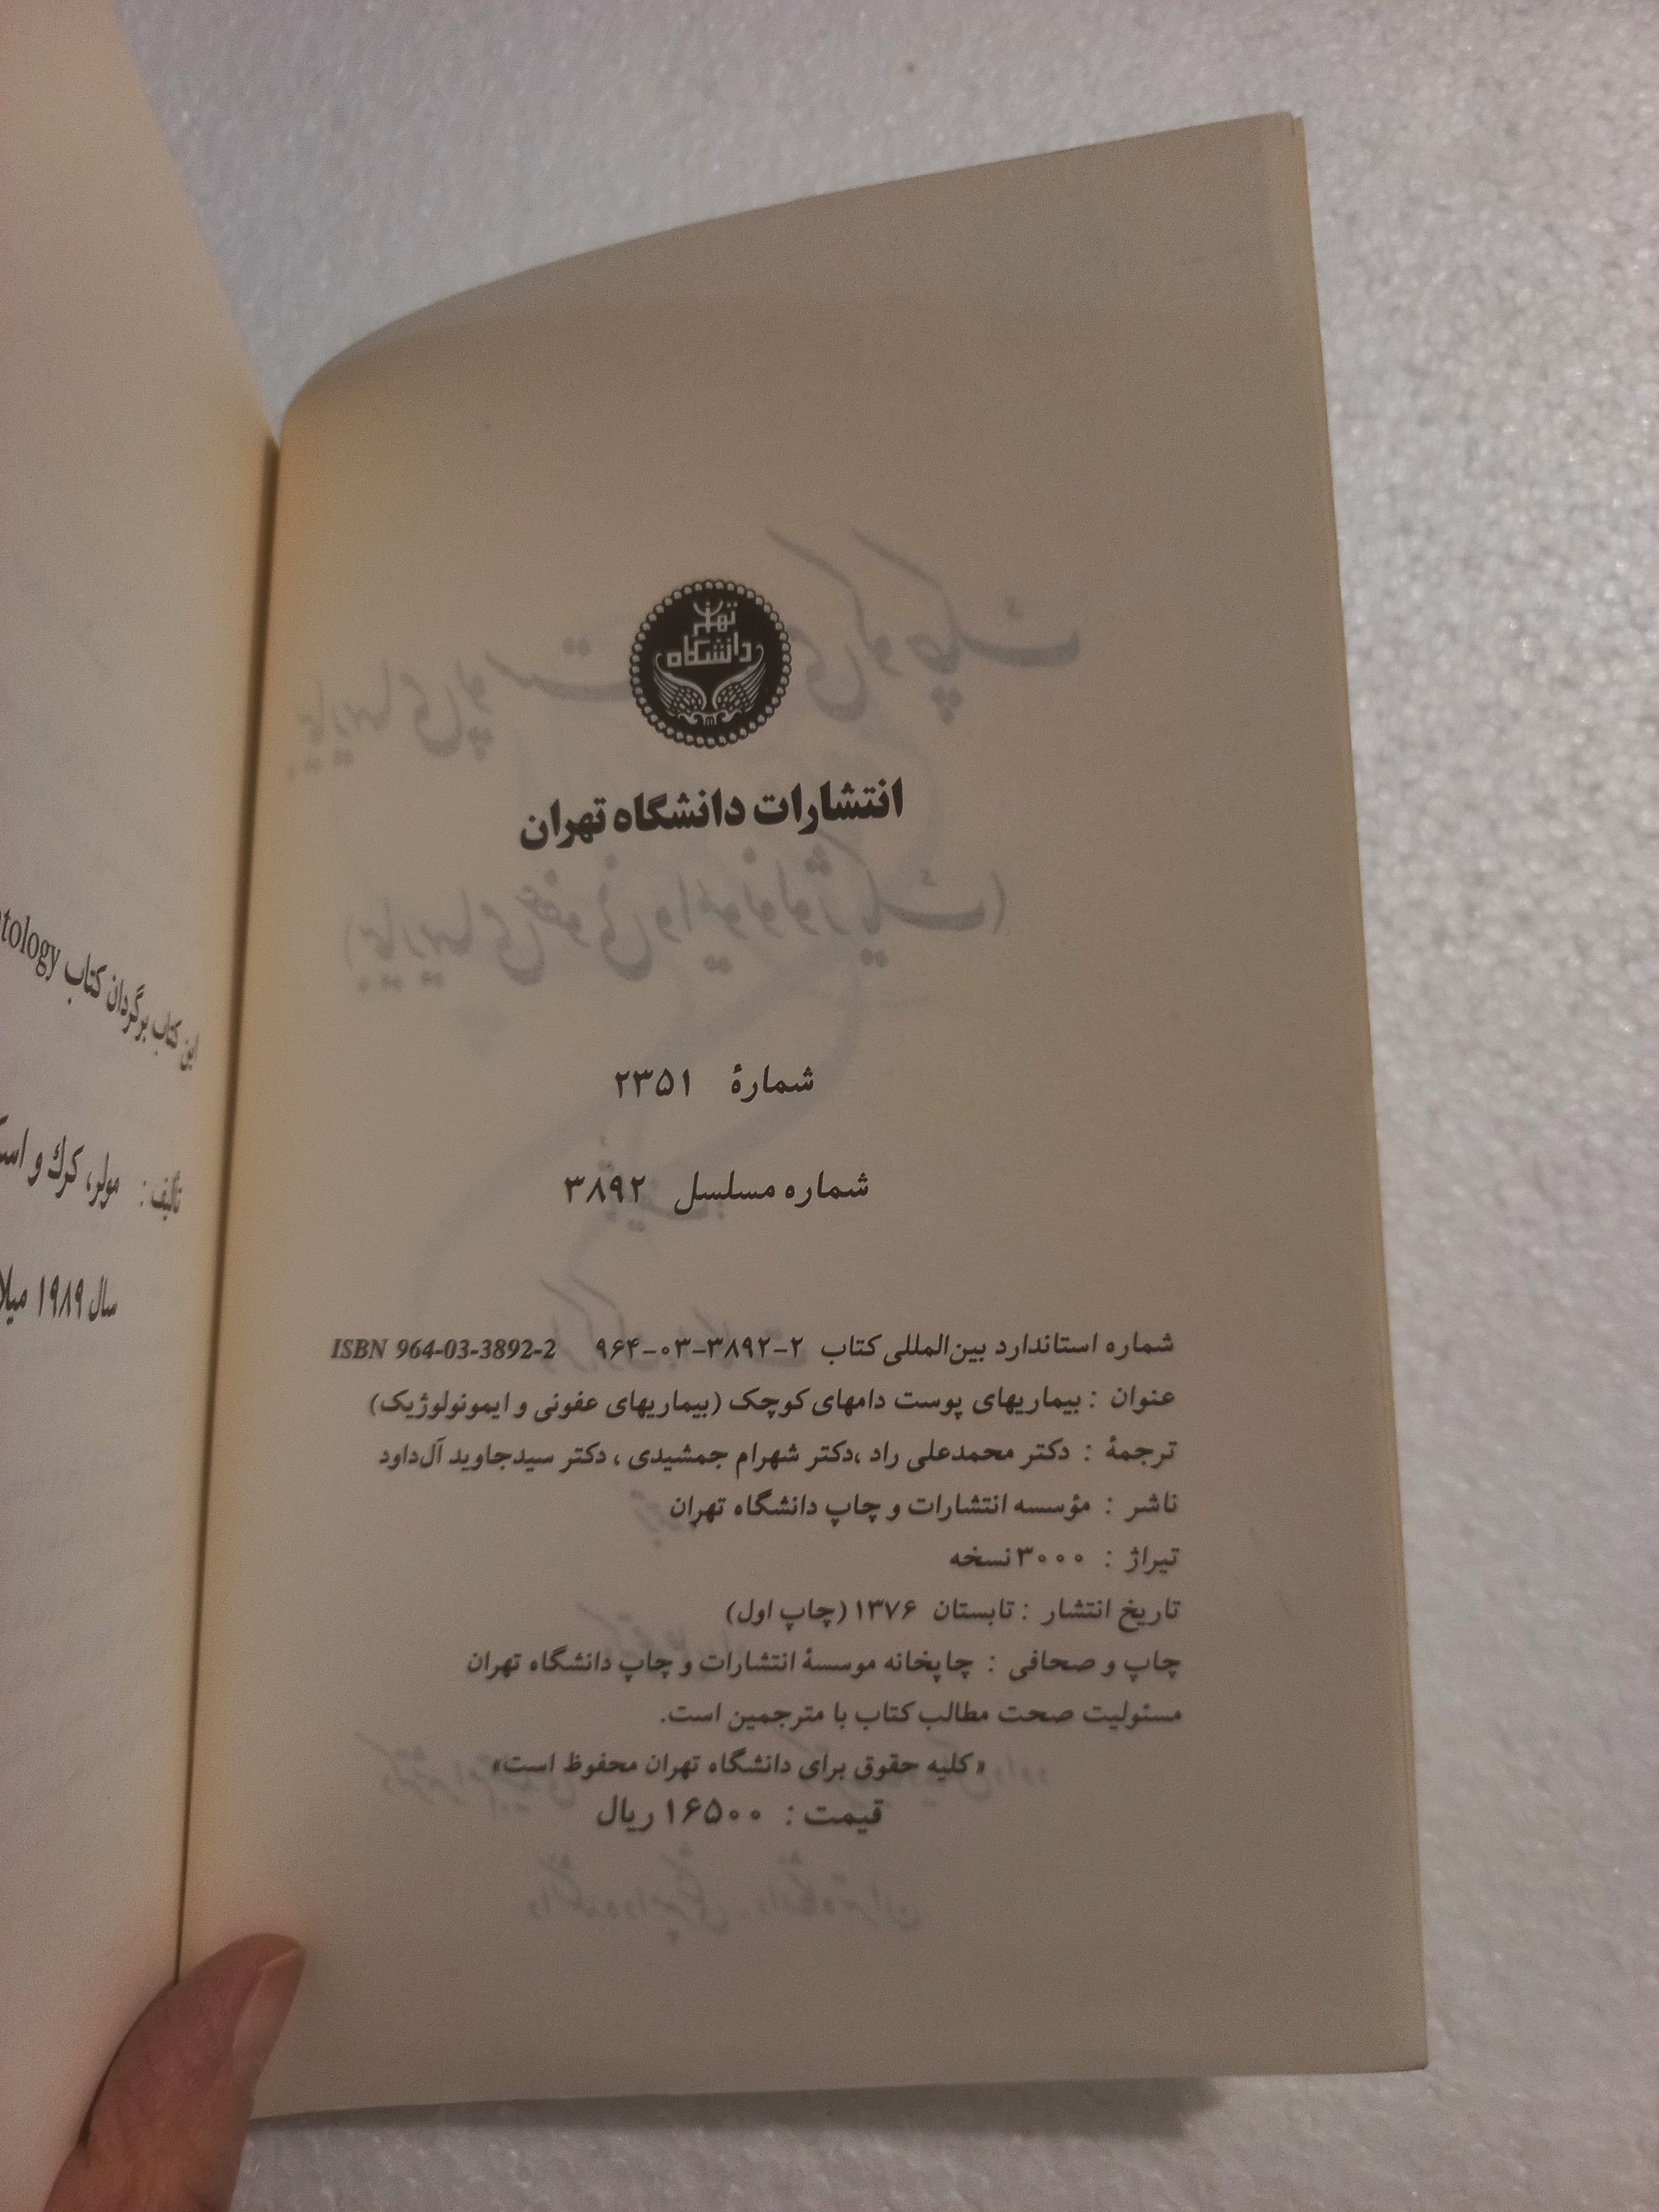 دانشگاه تهران
انتشارات دانشگاه تهران
شمارۀ ۲۳۵۱
شماره مسلسل ۳۸۹۲
شماره استاندارد بین‌المللی کتاب ۲-۳۸۹۲-۰۳-۹۶۴ ISBN 964-03-3892-2
عنوان : بیماریهای پوست دامهای کوچک (بیماریهای عفونی و ایمونولوژیک)
ترجمۀ : دکتر محمدعلی راد ،دکتر شهرام جمشیدی ، دکتر سیدجاوید آل‌داود
ناشر : مؤسسه انتشارات و چاپ دانشگاه تهران
تیراژ : ۳۰۰۰ نسخه
تاریخ انتشار : تابستان ۱۳۷۶ (چاپ اول)
چاپ و صحافی : چاپخانه موسسۀ انتشارات و چاپ دانشگاه تهران
مسئولیت صحت مطالب کتاب با مترجمین است.
«کلیه حقوق برای دانشگاه تهران محفوظ است»
قیمت : ۱۶۵۰۰ ریال
این کتاب برگردان کتاب
تألیف : مولر، کرك و
سال ۱۹۸۹